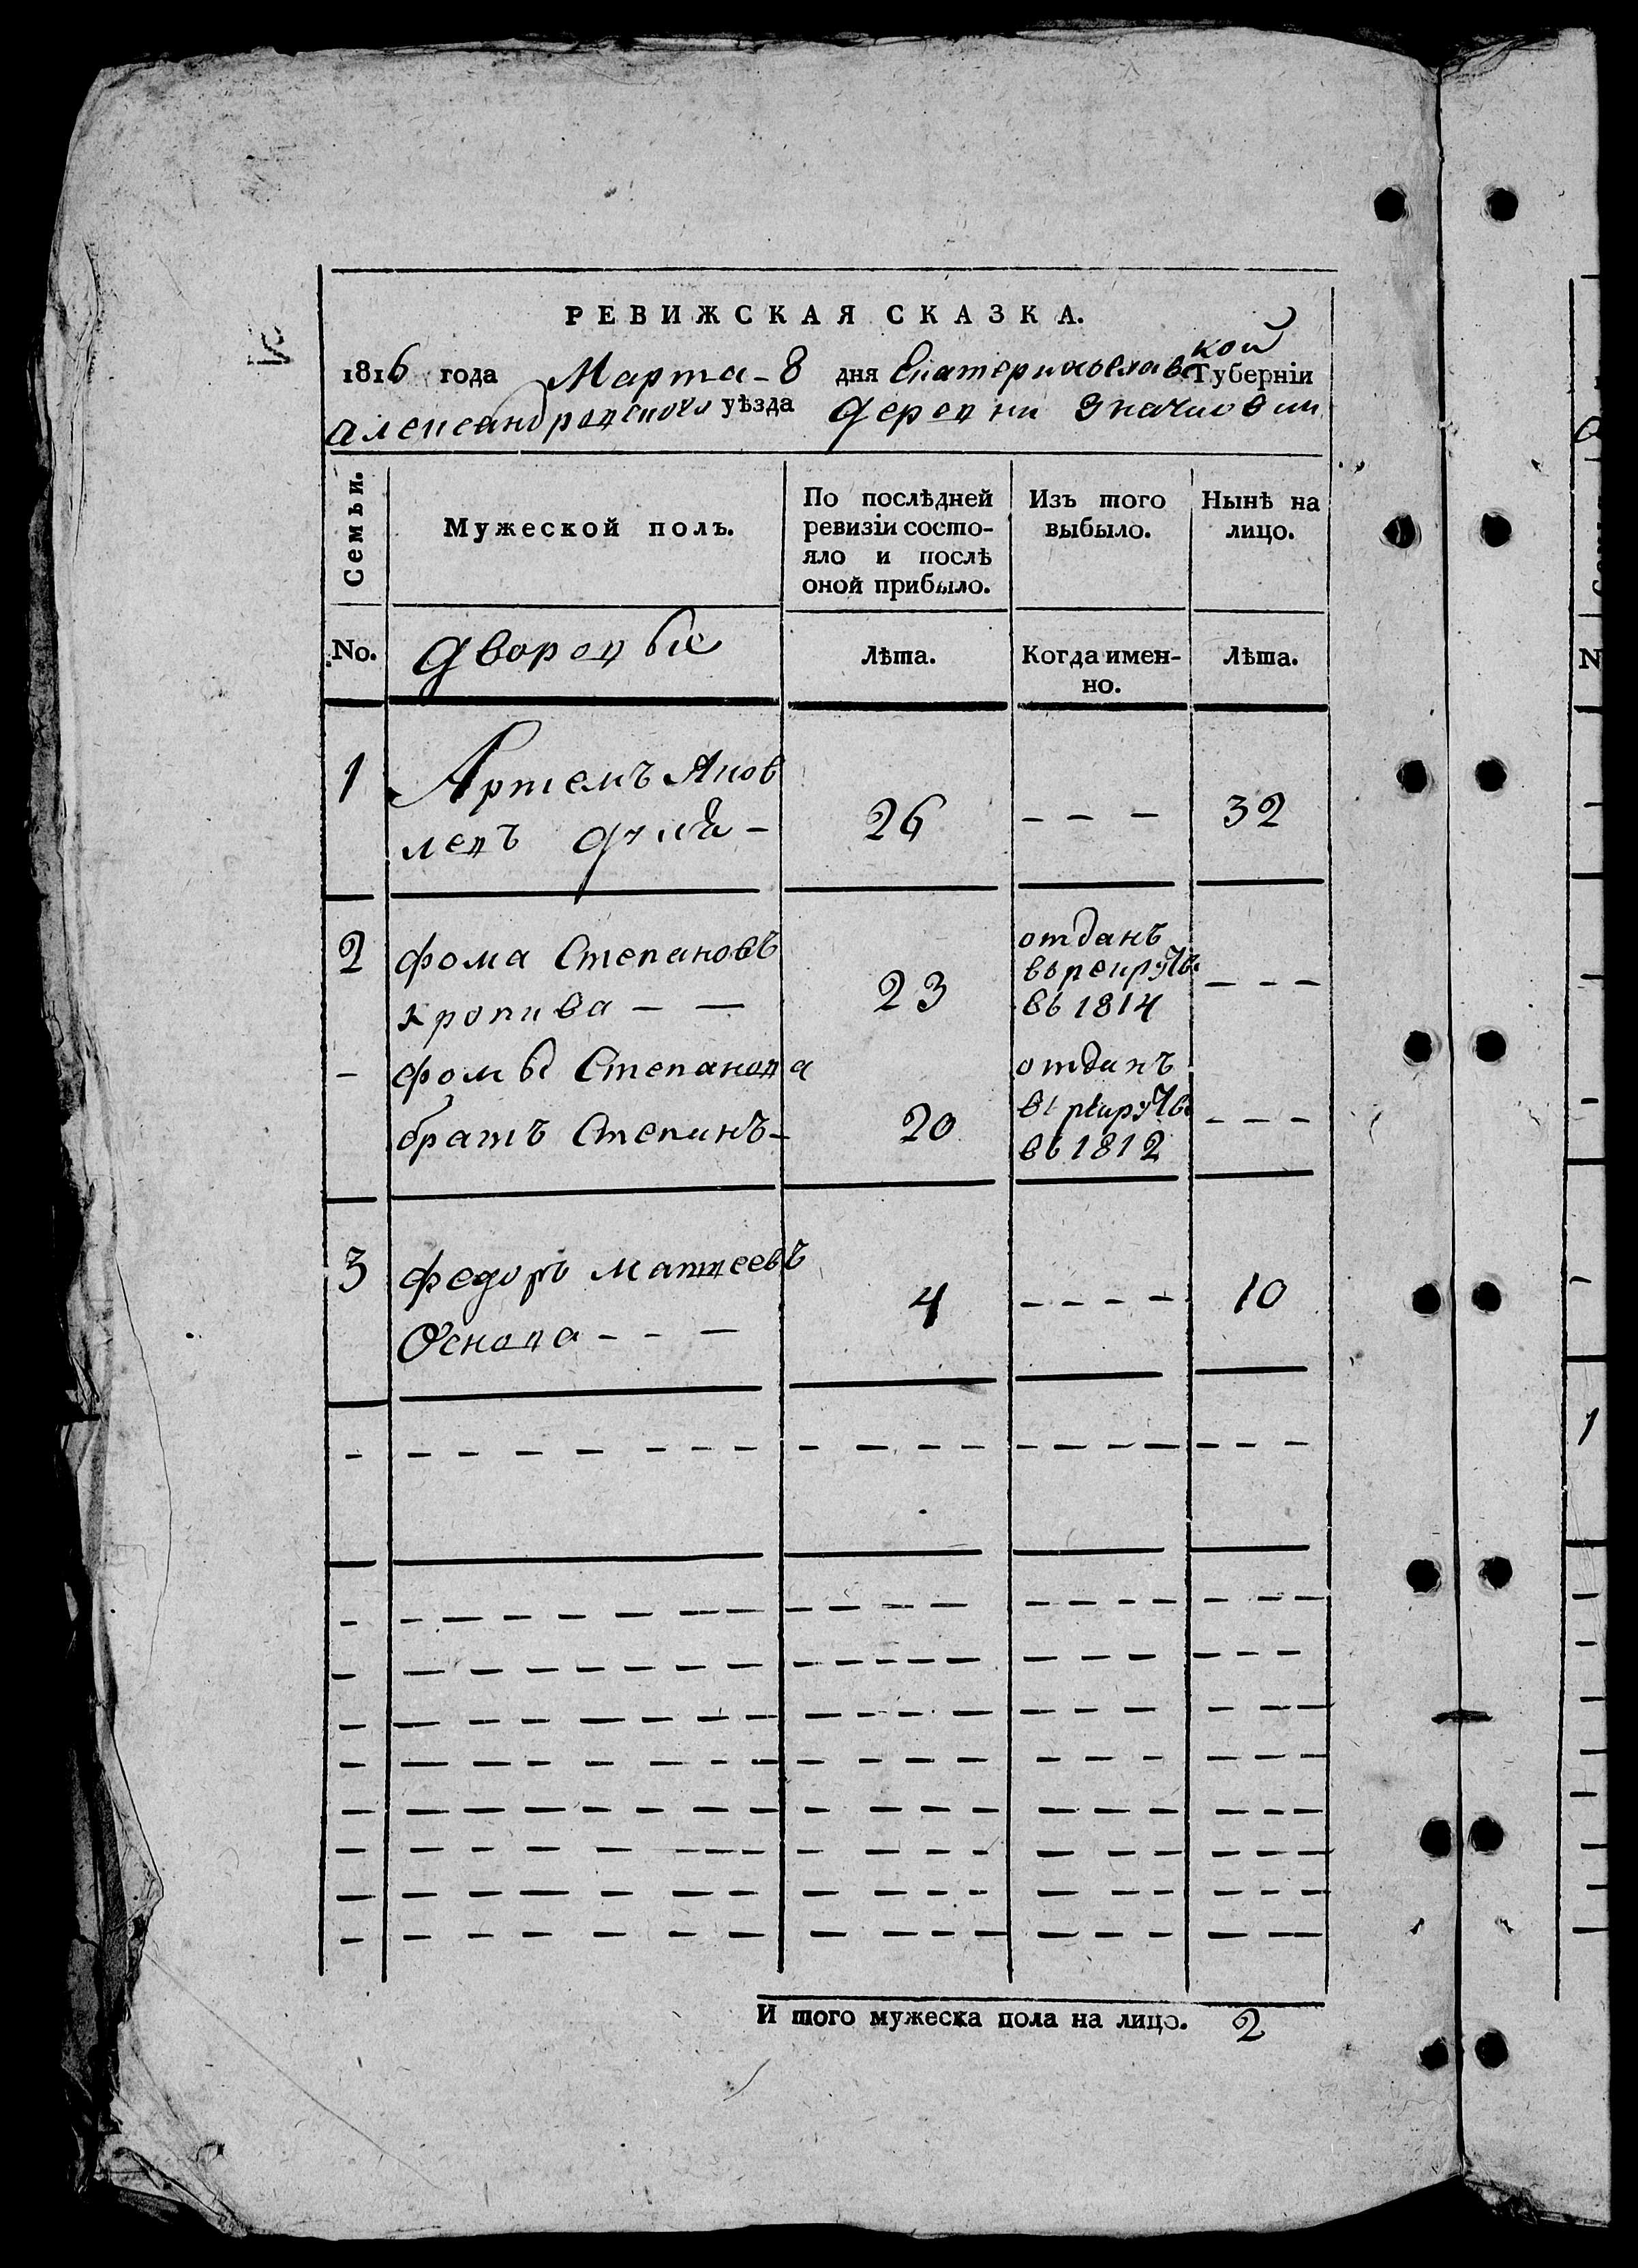 РЕВИЖСКАЯ СКАЗКА.
1816 года Марта - 8 дня Екатеринославской Губерніи
Александровского уѣзда деревни
Семьи.
Мужеской полъ.
По послѣдней ревизіи состо-
яло и послѣ
оной прибыло.
Изъ того
выбыло.
Нынѣ на
лицо.
No.
дворовые
лѣта.
Когда имен-
но.
Лѣта.
1 Артемъ Яков
левъ 26 - - - 32
2 Фома Степановъ
кропива - - 23
отданъ
въ рекруты
въ 1814 - - -
- Фомы Степанова
братъ Степанъ - 20
отданъ
въ рекруты
въ 1812 - - -
3 Федоръ Матвеевъ
Основа - - - 4 - - - - 10
И того мужеска пола на лицо. 2
N
1